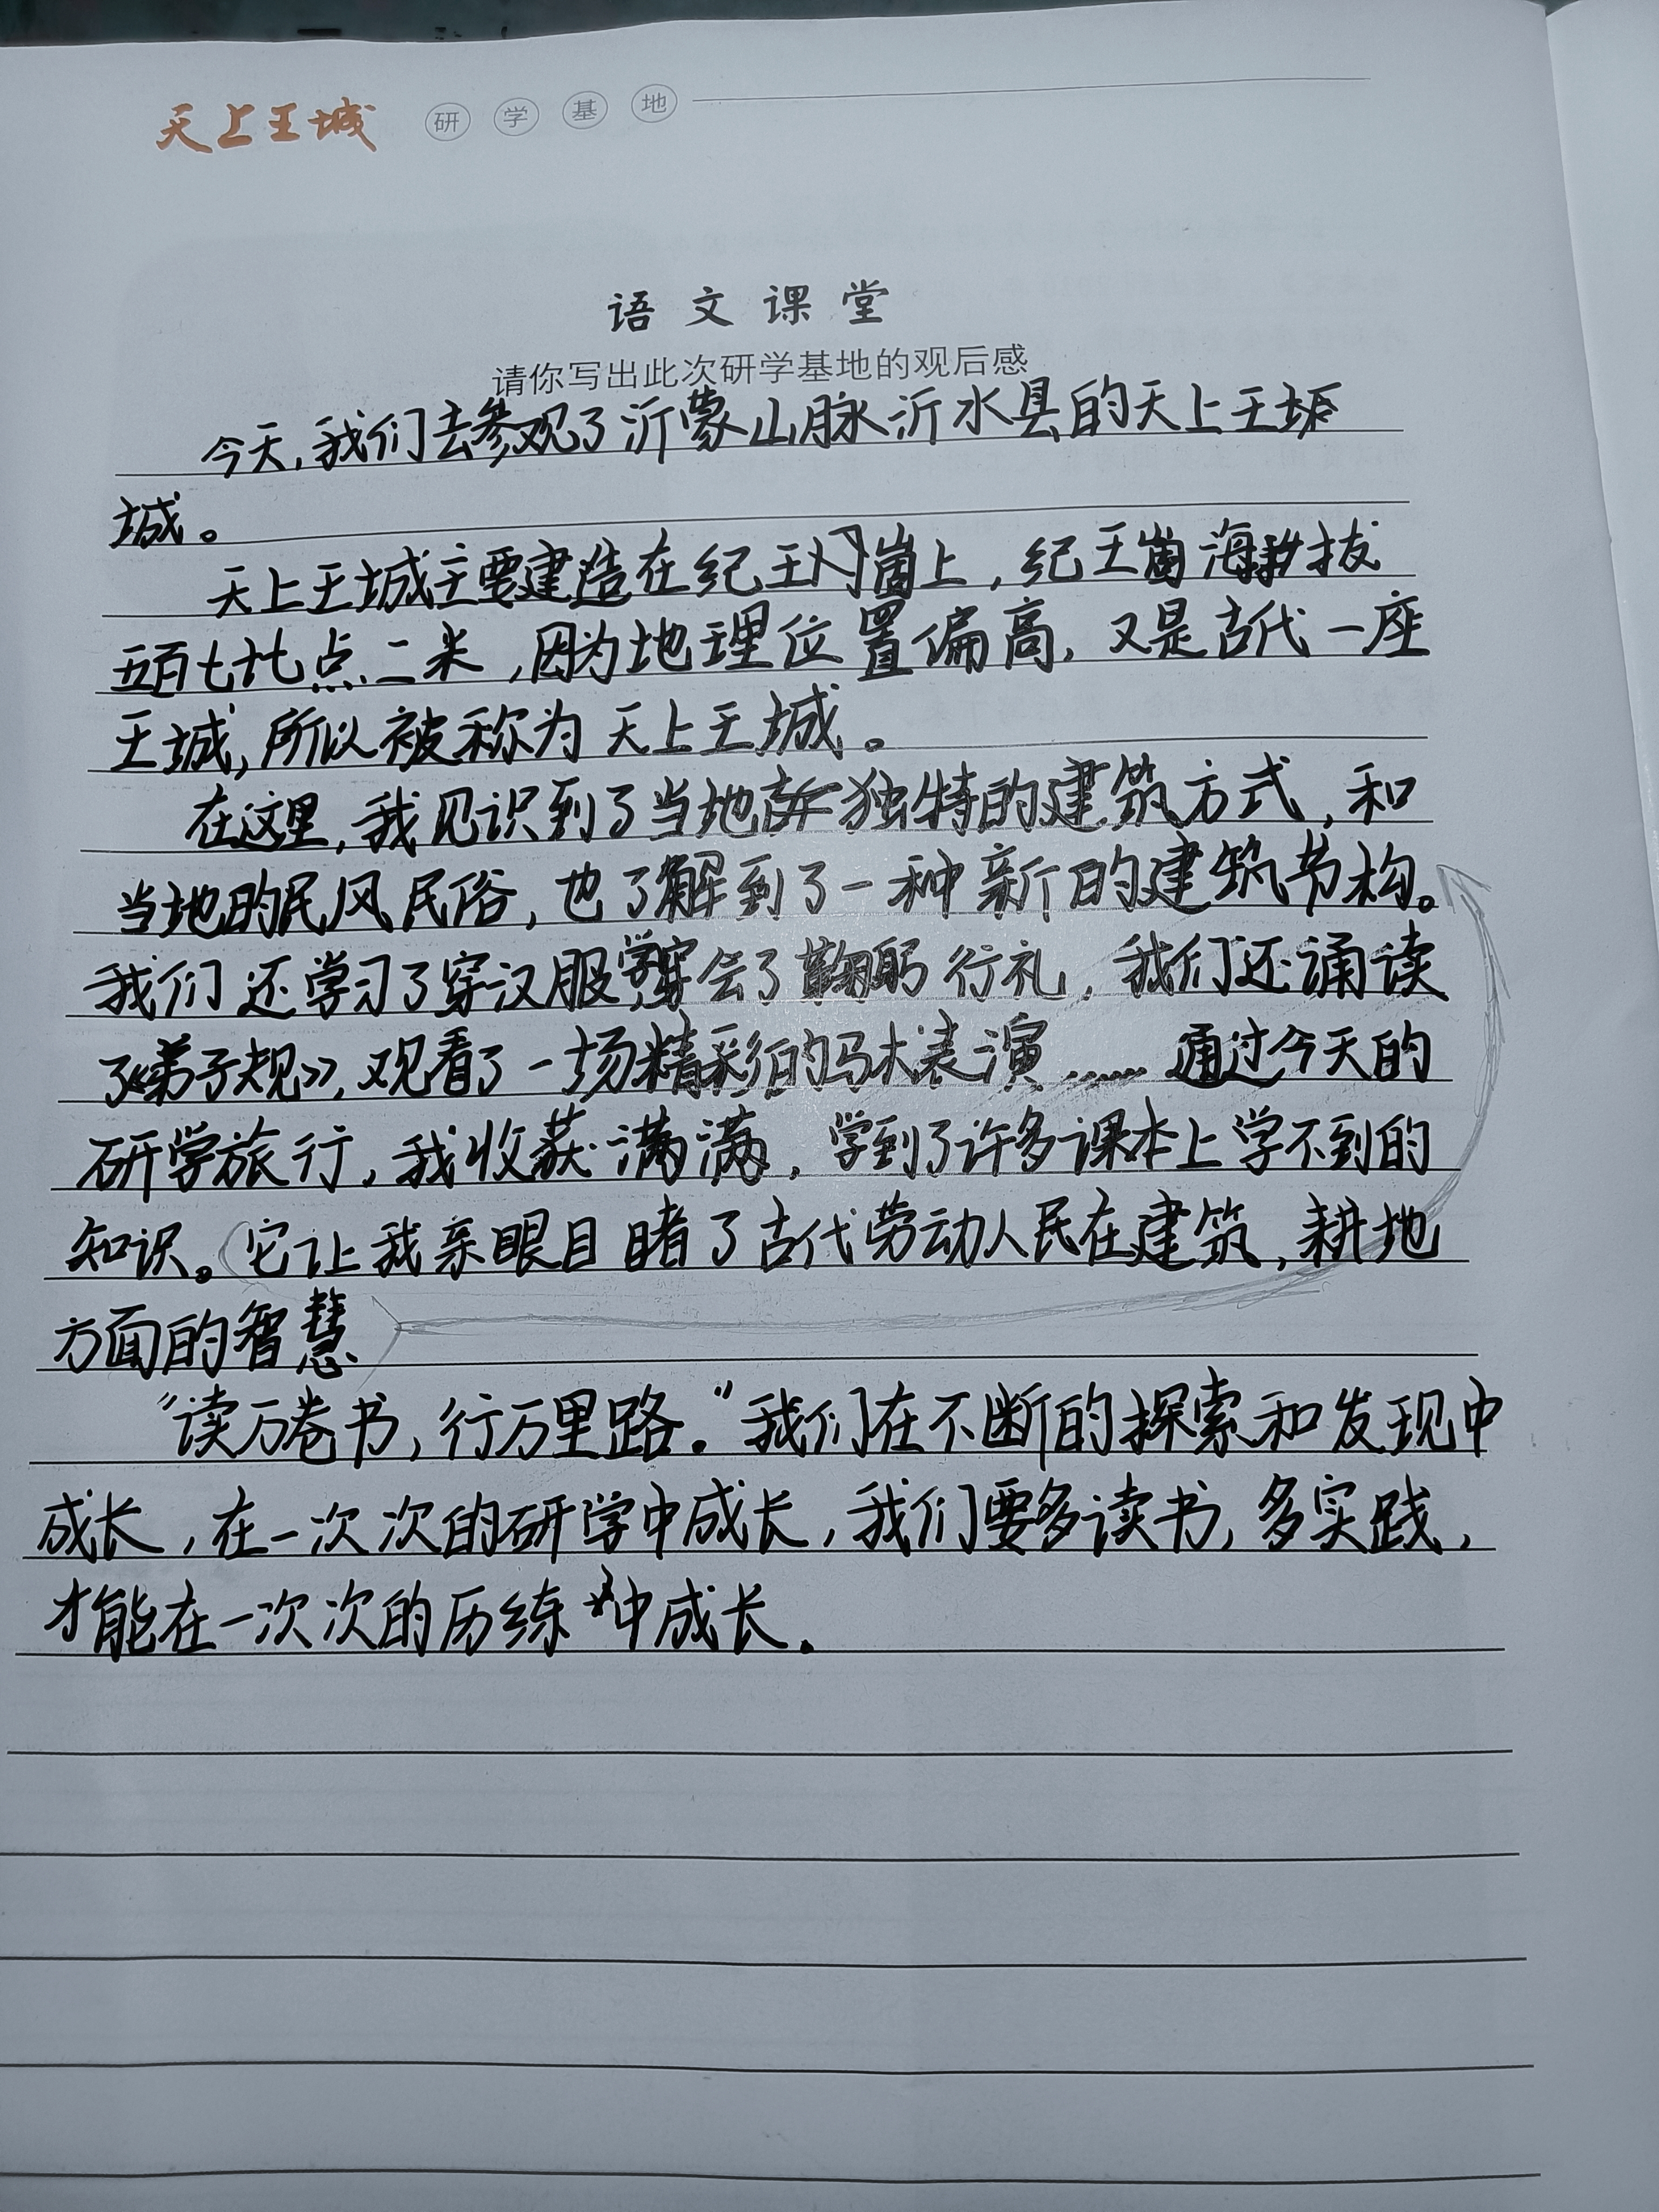 天上王城 研学基地
语文课堂
请你写出此次研学基地的观后感
今天,我们去参观了沂蒙山脉沂水县的天上王
城。
天上王城主要建造在纪王崮上,纪王崮海拔
五百七十七点二米,因为地理位置偏高,又是古代一座
王城,所以被称为天上王城。
在这里,我见识到了当地独特的建筑方式,和
当地的民风民俗,也了解到了一种新的建筑节构。
我们还学习了穿汉服,学会了鞠躬行礼,我们还诵读
了《弟子规》,观看了一场精彩的马术表演……通过今天的
研学旅行,我收获满满,学到了许多课本上学不到的
知识。它让我亲眼目睹了古代劳动人民在建筑,耕地
方面的智慧.
“读万卷书,行万里路。”我们在不断的探索和发现中
成长,在一次次的研学中成长,我们要多读书,多实践,
才能在一次次的历练中成长。